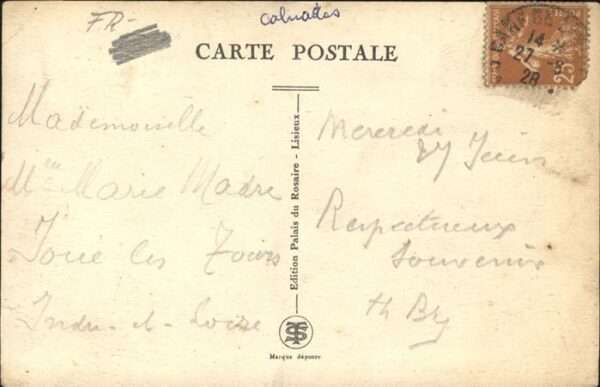 FR-
Calvados
CARTE POSTALE
14 *
27 - 6
28
25
Mademoiselle
Mlle Marie Madre
Joué les Tours
Indre-et-Loire
Edition Palais du Rosaire - Lisieux
Mercredi
27 Juin
Respectueux
Souvenir
Marque déposée